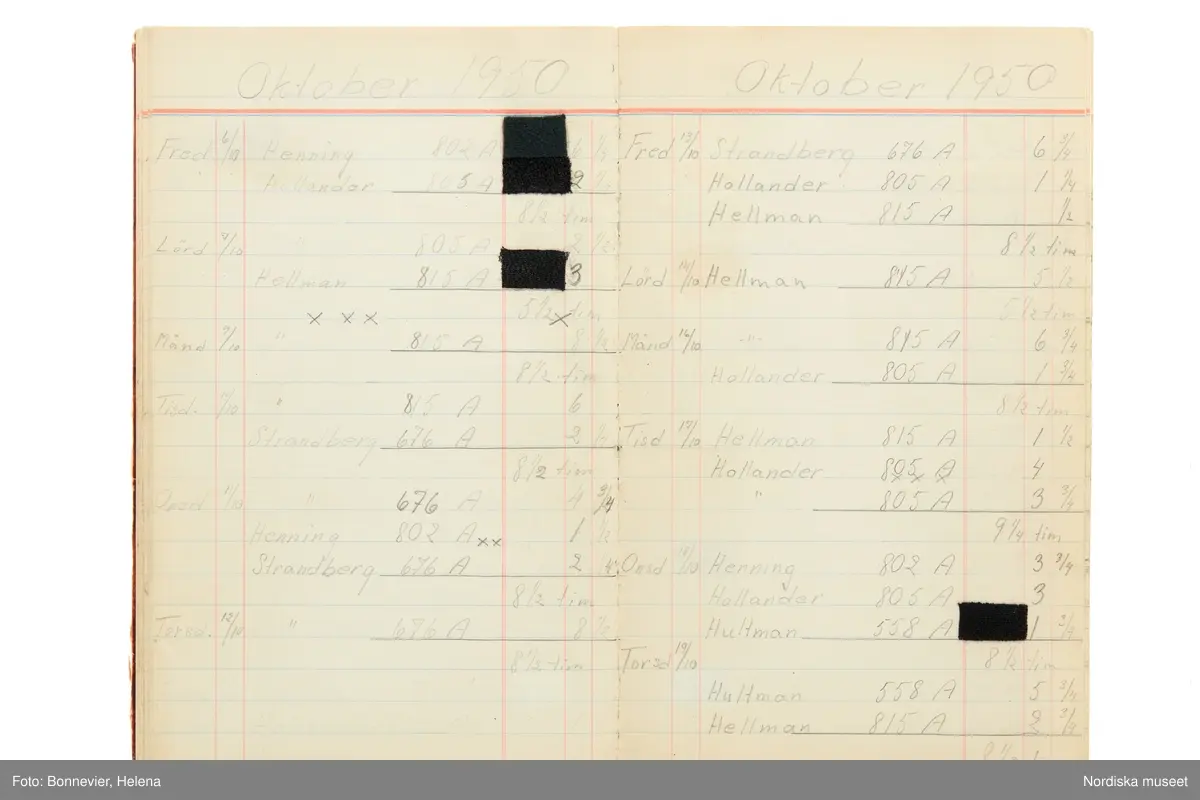 Oktober 1950
Fred 6/10 Henning 802 A 6
Hollander 805 A 2
8 1/2 tim
Lörd 7/10 " 805 A 2 1/2
Hellman 815 A 3
5 1/2 tim
x x x x
Månd 9/10 " 815 A 8 1/2
8 1/2 tim
Tisd. 10/10 " 815 A 6
Strandberg 676 A 2
8 1/2 tim
Onsd 11/10 " 676 A 4 3/4
Henning 802 A xx 1 1/2
Strandberg 676 A 2 1/4
8 1/2 tim
Torsd. 12/10 " 676 A 8 1/2
8 1/2 tim
Oktober 1950
Fred 13/10 Strandberg 676 A 6 3/4
Hollander 805 A 1 1/4
Hellman 815 A 1/2
8 1/2 tim
Lörd 14/10 Hellman 815 A 5 1/2
5 1/2 tim
Månd 16/10 -"- 815 A 6 3/4
Hollander 805 A 1 3/4
8 1/2 tim
Tisd 17/10 Hellman 815 A 1 1/2
Hollander 805 A 4
x x x
" 805 A 3 3/4
9 1/4 tim
Onsd 18/10 Henning 802 A 3 3/4
Hollander 805 A 3
Hultman 558 A 1 3/4
8 1/2 tim
Torsd 19/10
Hultman 558 A 5 3/4
Hellman 815 A 2 3/4
Foto: Bonnevier, Helena
Nordiska museet